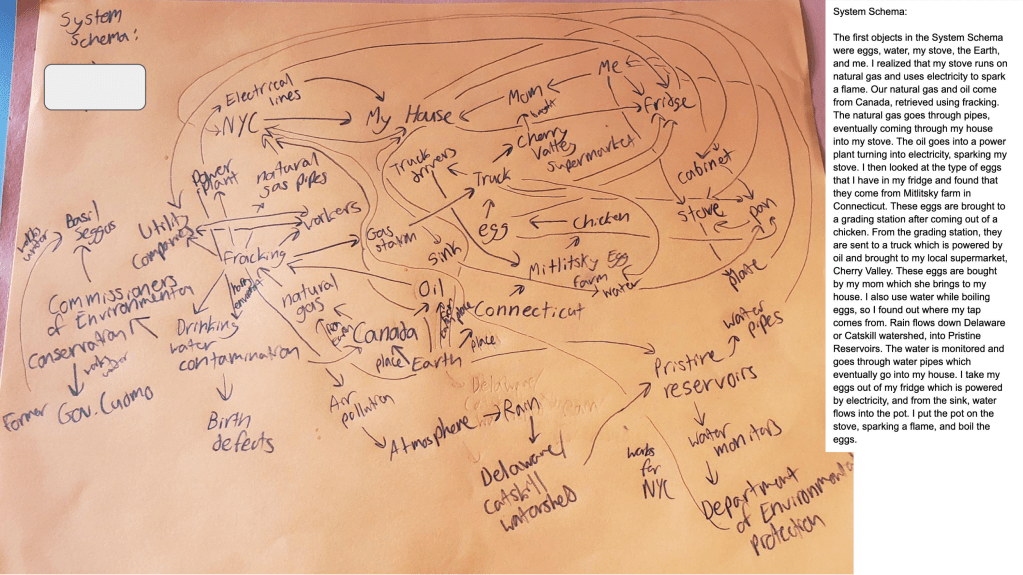 System
Schema:
Electrical
lines
NYC
My House
Mom
bought
Me
Fridge
Cherry
Valley
Supermarket
Truck
drivers
Truck
cabinet
power
plant
natural
gas pipes
workers
Utility
Companies
Basil
Seggos
works
under
Fracking
Gas
station
sink
egg
chicken
stove
pan
plate
Mitlitsky Egg
farm
water
Commissioners
of Environmental
Conservation
works
under
Former Gov. Cuomo
Drinking
water
contamination
Birth
defects
natural
gas
Canada
place
Oil
Connecticut
place
Earth
Air
pollution
Atmosphere
Rain
Delaware/
Catskill
watershed
Pristine
reservoirs
water
pipes
water
monitors
works
for
NYC
Department
of Environmental
Protection
System Schema:
The first objects in the System Schema
were eggs, water, my stove, the Earth,
and me. I realized that my stove runs on
natural gas and uses electricity to spark
a flame. Our natural gas and oil come
from Canada, retrieved using fracking.
The natural gas goes through pipes,
eventually coming through my house
into my stove. The oil goes into a power
plant turning into electricity, sparking my
stove. I then looked at the type of eggs
that I have in my fridge and found that
they come from Mitlitsky farm in
Connecticut. These eggs are brought to
a grading station after coming out of a
chicken. From the grading station, they
are sent to a truck which is powered by
oil and brought to my local supermarket,
Cherry Valley. These eggs are bought
by my mom which she brings to my
house. I also use water while boiling
eggs, so I found out where my tap
comes from. Rain flows down Delaware
or Catskill watershed, into Pristine
Reservoirs. The water is monitored and
goes through water pipes which
eventually go into my house. I take my
eggs out of my fridge which is powered
by electricity, and from the sink, water
flows into the pot. I put the pot on the
stove, sparking a flame, and boil the
eggs.